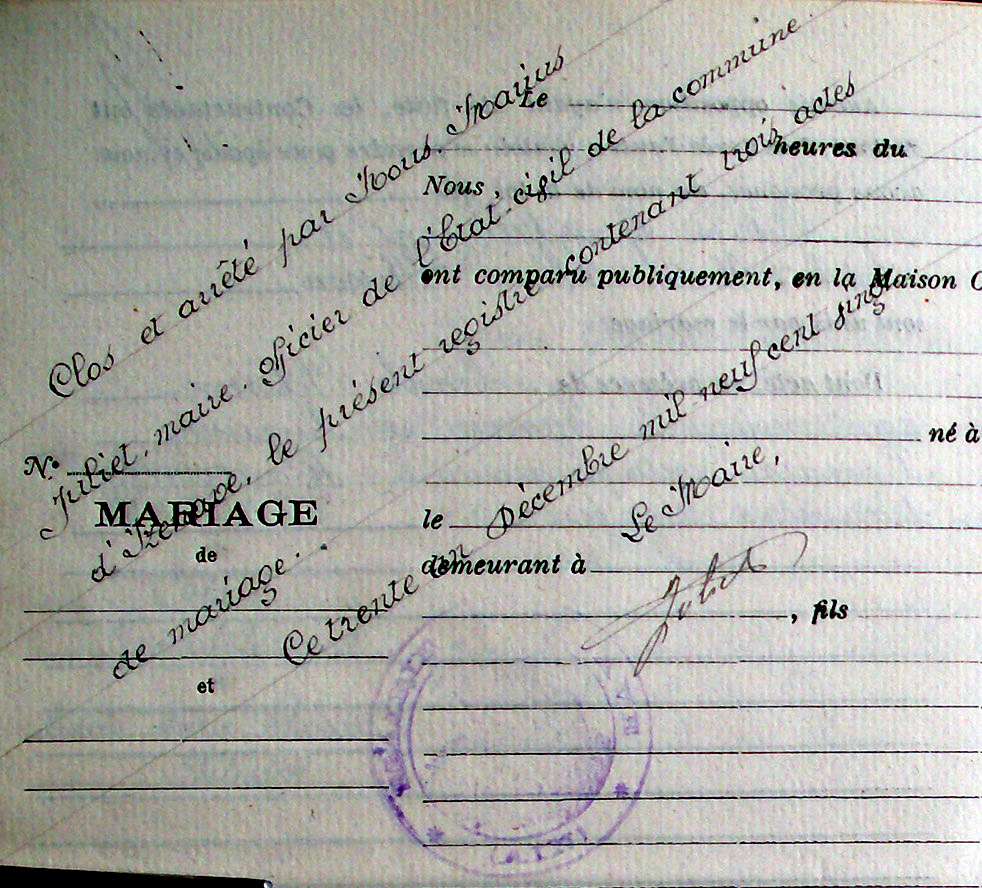 Clos et arrêté par Nous Marius
Juliet, maire. Officier de l'État-civil de la commune
d'Izenave, le présent registre contenant trois actes
de mariage.
Ce trente un Décembre mil neuf cent cinq
Le Maire,
Juliet
Le
heures du
Nous,
ont comparu publiquement, en la Maison C
né à
le
demeurant à
, fils
N°
MARIAGE
de
et
(AIN)